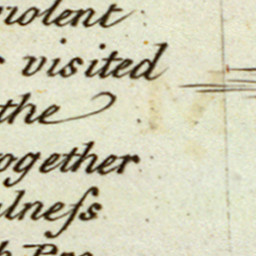 violent
visited
the
together
ulneſs